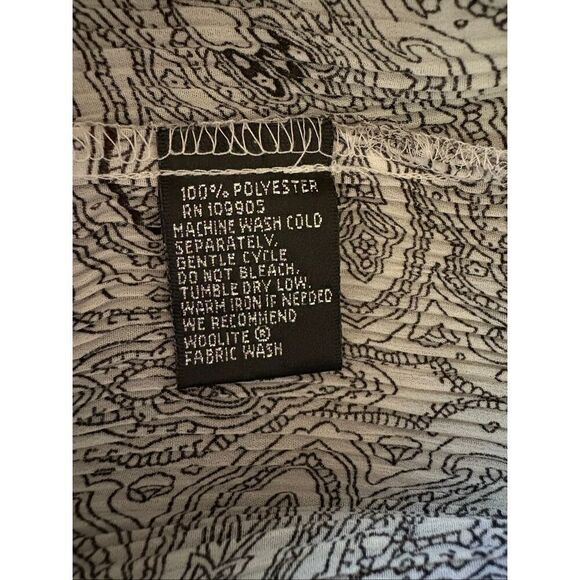 100% POLYESTER
RN 109905
MACHINE WASH COLD
SEPARATELY,
GENTLE CYCLE
DO NOT BLEACH,
TUMBLE DRY LOW,
WARM IRON IF NEEDED
WE RECOMMEND
WOOLITE ®
FABRIC WASH